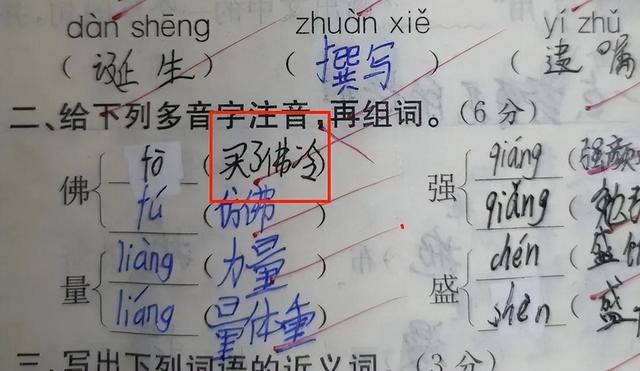 dàn shēng zhuàn xiě yí zhǔ
(诞生) (撰写) (遗嘱
二、给下列多音字注音,再组词。(6分)
fō (买了佛冷) qiáng (强颜
佛 强
fú (仿佛) qiǎng (
liàng (力量) chén (盛
量 盛
liáng (量体重) shèn (盛
三、写出下列词语的近义词。(3分)